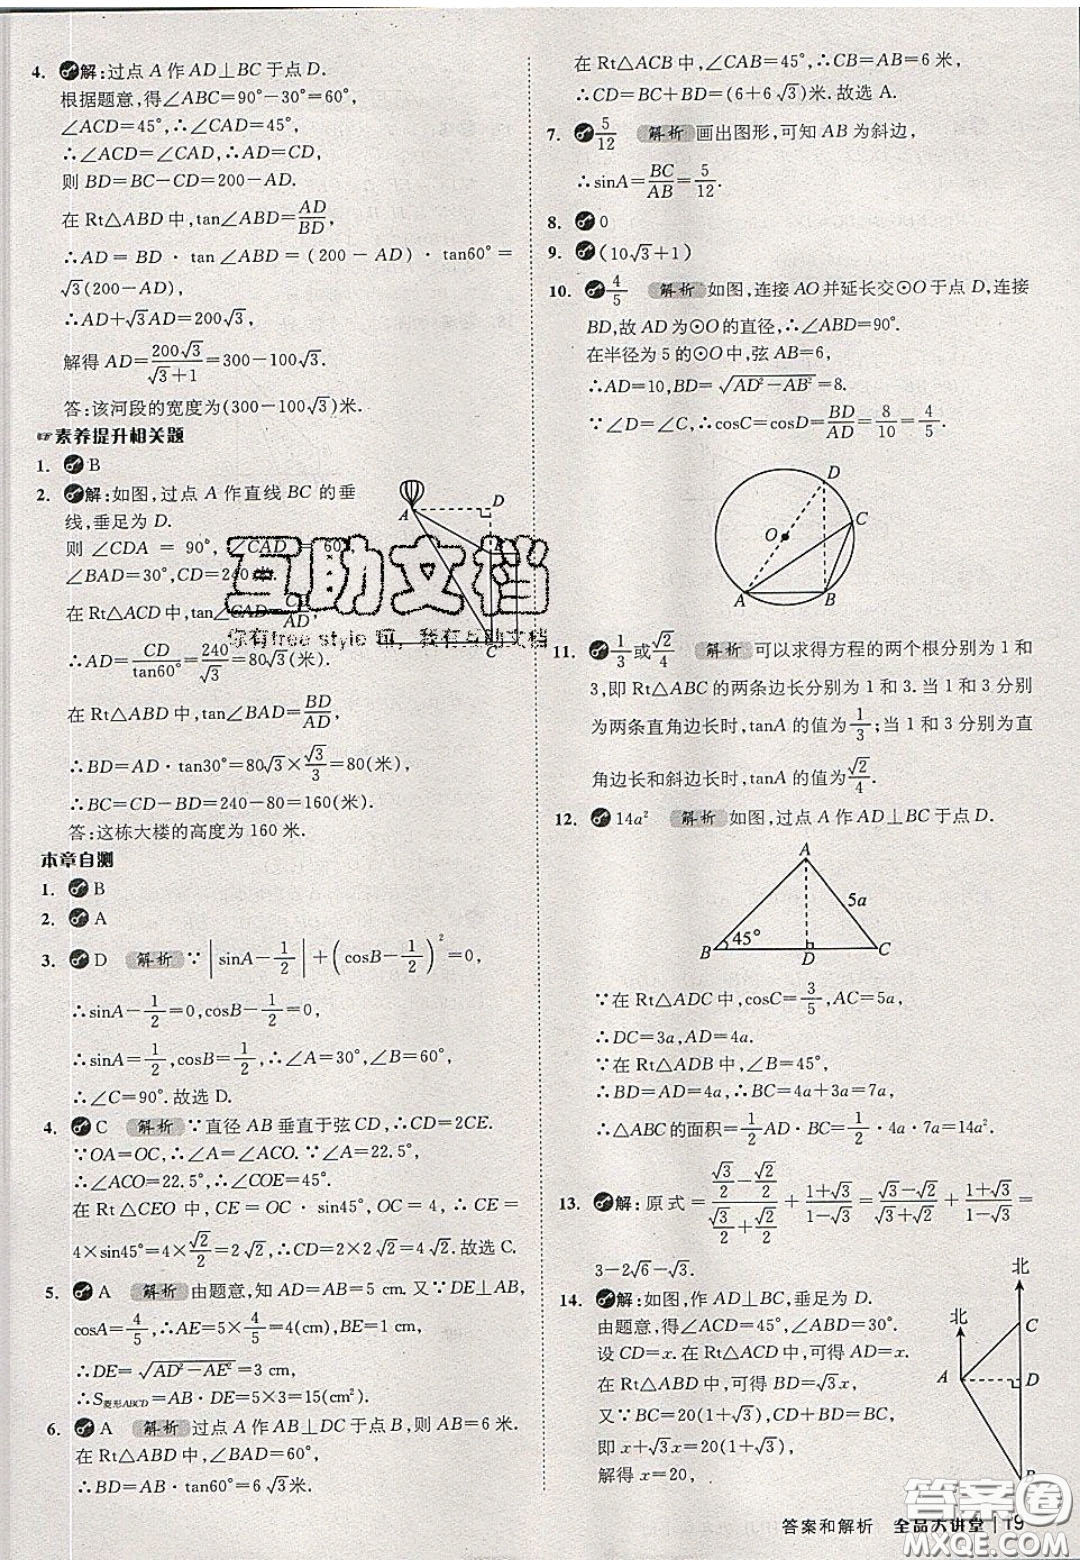 4. 解:过点 A 作 AD⊥BC 于点 D.
根据题意,得∠ABC=90°-30°=60°,
∠ACD=45°,∴∠CAD=45°,
∴∠ACD=∠CAD,∴AD=CD,
则 BD=BC-CD=200-AD.
在 Rt△ABD 中,tan∠ABD=AD/BD,
∴AD=BD·tan∠ABD=(200-AD)·tan60°=
√3(200-AD),
∴AD+√3AD=200√3,
解得 AD=200√3/(√3+1)=300-100√3.
答:该河段的宽度为(300-100√3)米.
☞素养提升相关题
1. B
2. 解:如图,过点 A 作直线 BC 的垂
线,垂足为 D.
则 ∠CDA = 90°, ∠CAD = 60°,
∠BAD=30°,CD=240米.
在 Rt△ACD 中,tan∠CAD=CD/AD,
∴AD=CD/tan60°=240/√3=80√3(米).
在 Rt△ABD 中,tan∠BAD=BD/AD,
∴BD=AD·tan30°=80√3×√3/3=80(米),
∴BC=CD-BD=240-80=160(米).
答:这栋大楼的高度为 160 米.
本章自测
1. B
2. A
3. D 解析 ∵|sinA-1/2|+(cosB-1/2)²=0,
∴sinA-1/2=0,cosB-1/2=0,
∴sinA=1/2,cosB=1/2,∴∠A=30°,∠B=60°,
∴∠C=90°.故选 D.
4. C 解析 ∵直径 AB 垂直于弦 CD,∴CD=2CE.
∵OA=OC,∴∠A=∠ACO.∵∠A=22.5°,
∴∠ACO=22.5°,∴∠COE=45°.
在 Rt△CEO 中,CE=OC·sin45°,OC=4,∴CE=
4×sin45°=4×√2/2=2√2,∴CD=2×2√2=4√2.故选 C.
5. A 解析 由题意,知 AD=AB=5 cm.又∵DE⊥AB,
cosA=4/5,∴AE=5×4/5=4(cm),BE=1 cm,
∴DE=√(AD²-AE²)=3 cm,
∴S菱形ABCD=AB·DE=5×3=15(cm²).
6. A 解析 过点 A 作 AB⊥DC 于点 B,则 AB=6 米.
在 Rt△ABD 中,∵∠BAD=60°,
∴BD=AB·tan60°=6√3米.
在 Rt△ACB 中,∠CAB=45°,∴CB=AB=6 米,
∴CD=BC+BD=(6+6√3)米.故选 A.
7. 5/12 解析 画出图形,可知 AB 为斜边,
∴sinA=BC/AB=5/12.
8. 0
9. (10√3+1)
10. 4/5 解析 如图,连接 AO 并延长交⊙O 于点 D,连接
BD,故 AD 为⊙O 的直径,∴∠ABD=90°.
在半径为 5 的⊙O 中,弦 AB=6,
∴AD=10,BD=√(AD²-AB²)=8.
∵∠D=∠C,∴cosC=cosD=BD/AD=8/10=4/5.
11. 1/3或√2/4 解析 可以求得方程的两个根分别为 1 和
3,即 Rt△ABC 的两条边长分别为 1 和 3.当 1 和 3 分别
为两条直角边长时,tanA 的值为1/3;当 1 和 3 分别为直
角边长和斜边长时,tanA 的值为√2/4.
12. 14a² 解析 如图,过点 A 作 AD⊥BC 于点 D.
A
5a
B 45° D C
∵在 Rt△ADC 中,cosC=3/5,AC=5a,
∴DC=3a,AD=4a.
∵在 Rt△ADB 中,∠B=45°,
∴BD=AD=4a,∴BC=4a+3a=7a,
∴△ABC 的面积=1/2AD·BC=1/2·4a·7a=14a².
13. 解:原式=(√3/2-√2/2)/(√3/2+√2/2)+(1+√3)/(1-√3)=(√3-√2)/(√3+√2)+(1+√3)/(1-√3)=
3-2√6-√3.
14. 解:如图,作 AD⊥BC,垂足为 D.
由题意,得∠ACD=45°,∠ABD=30°.
设 CD=x.在 Rt△ACD 中,可得 AD=x,
在 Rt△ABD 中,可得 BD=√3x,
又∵BC=20(1+√3),CD+BD=BC,
即 x+√3x=20(1+√3),
解得 x=20,
北
北
C
A D
B
A D
B
C
D
C
O
A B
互助文档
你有free style 吗,我有互助文档
答案和解析 全品大讲堂 | 19
答案圈
MXQE.COM